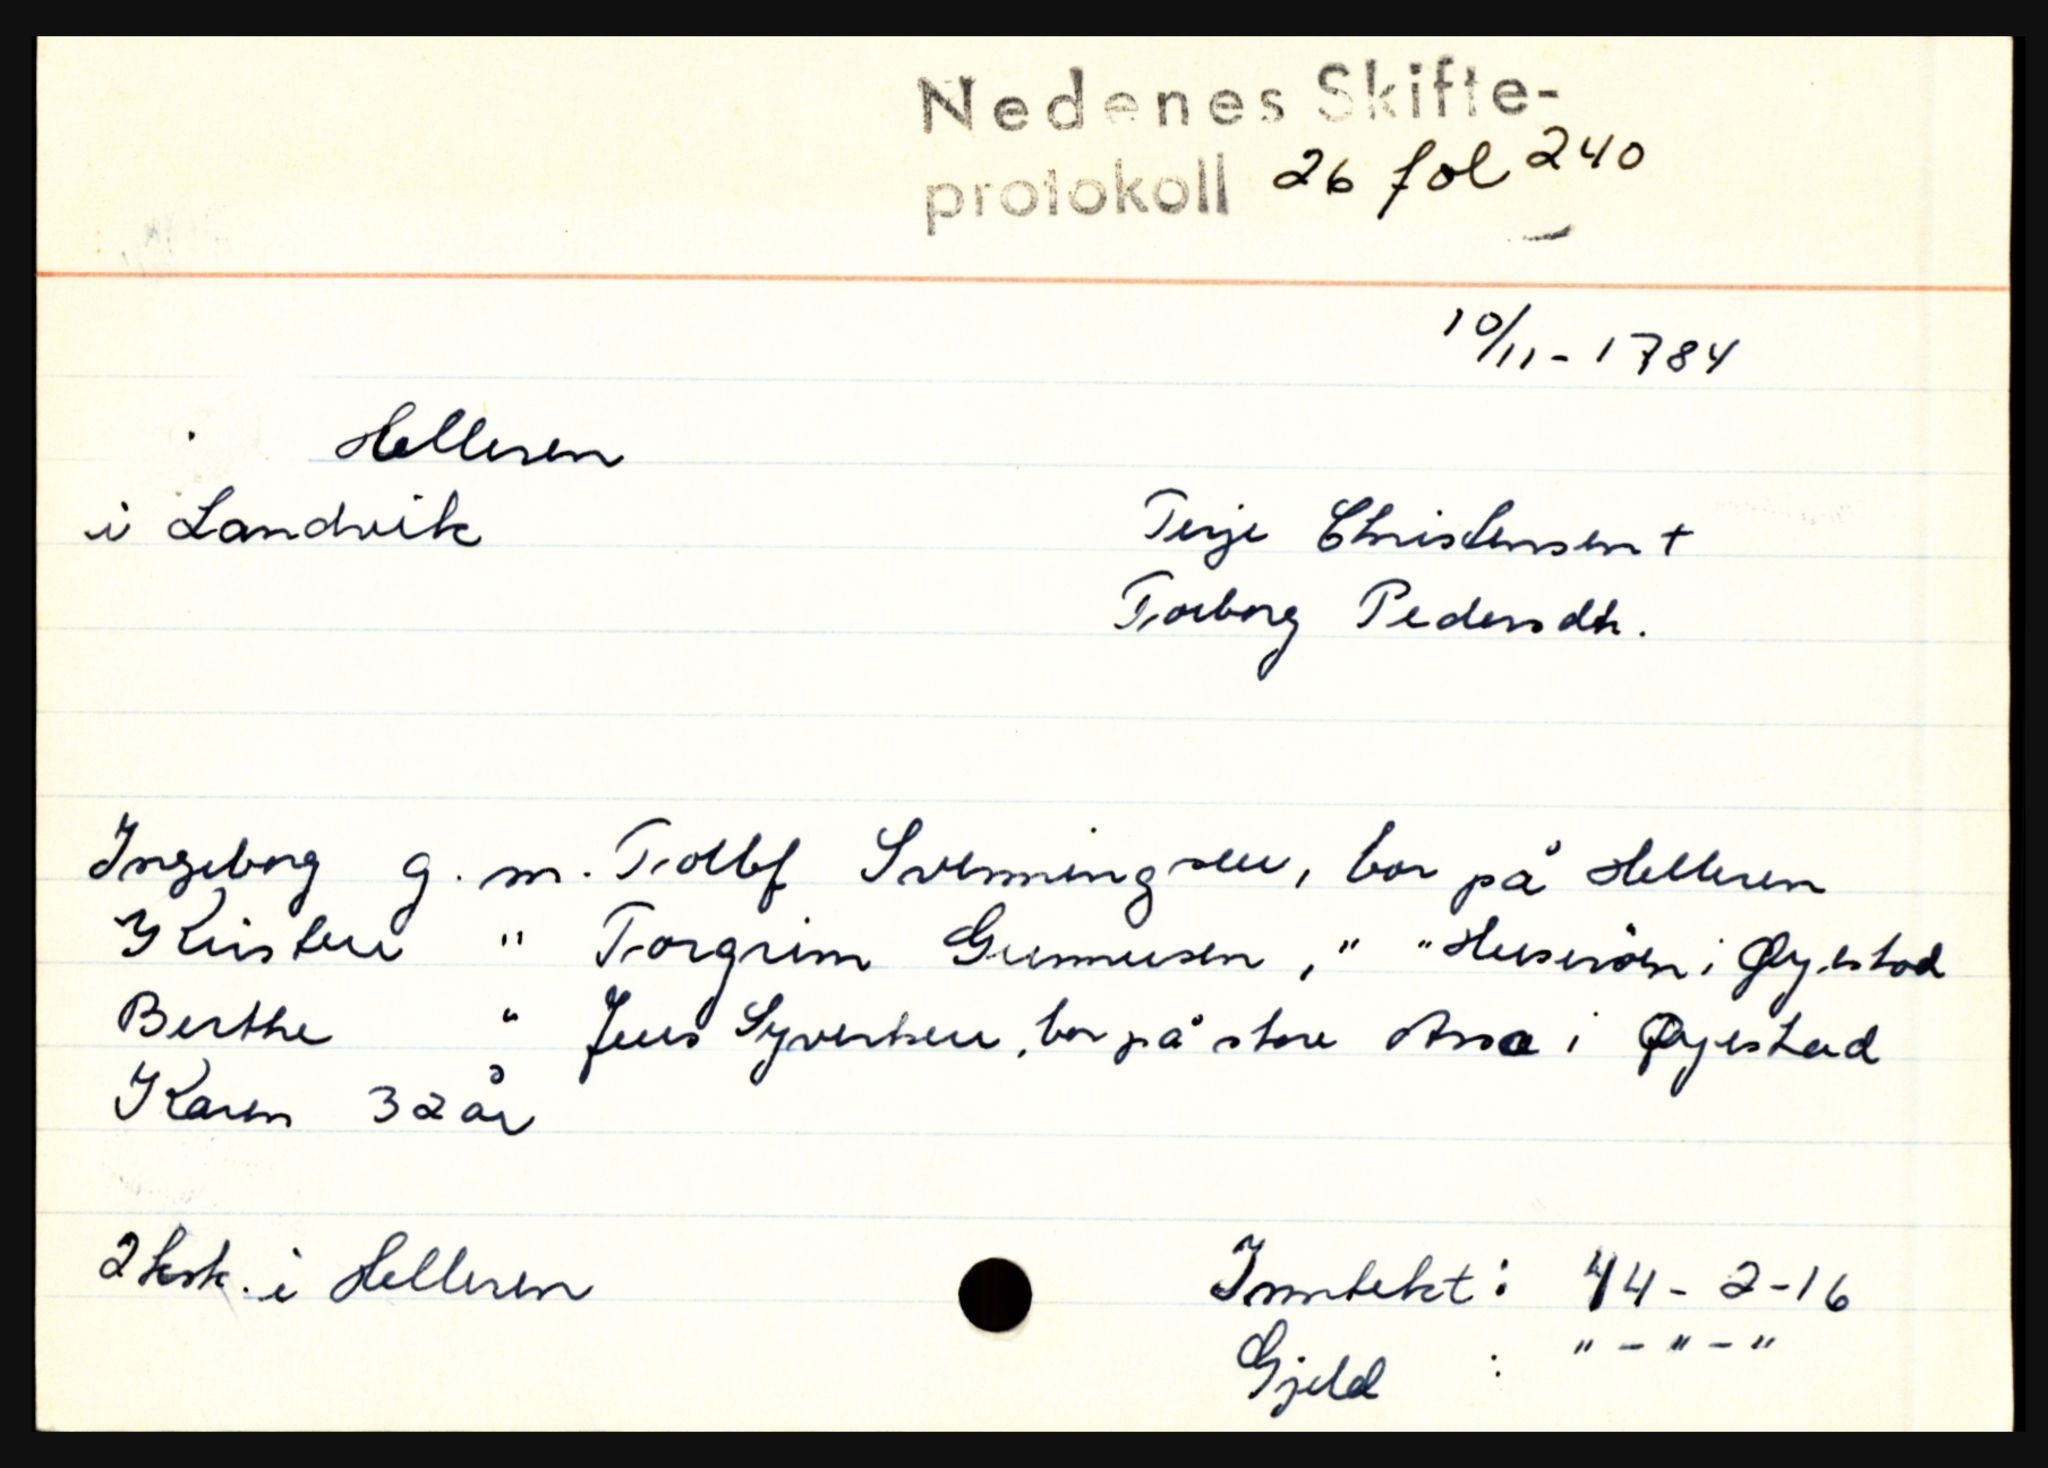 Nedenes Skifte-
protokoll 26 fol 240
10/11-1784
Helleren
i Landvik
Terje Christensen +
Torborg Pedersdtr.
Ingeborg g. m. Tollef Svenningsen, bor på Helleren
Kirsten " Torgrim Gunnusen, " " i Øyestad
Berthe " Jens Syvertsen, bor på store Assa i Øyestad
Karen 32 år
2 ksk. i Helleren
Inntekt: 44-2-16
Gjeld : "-"-"